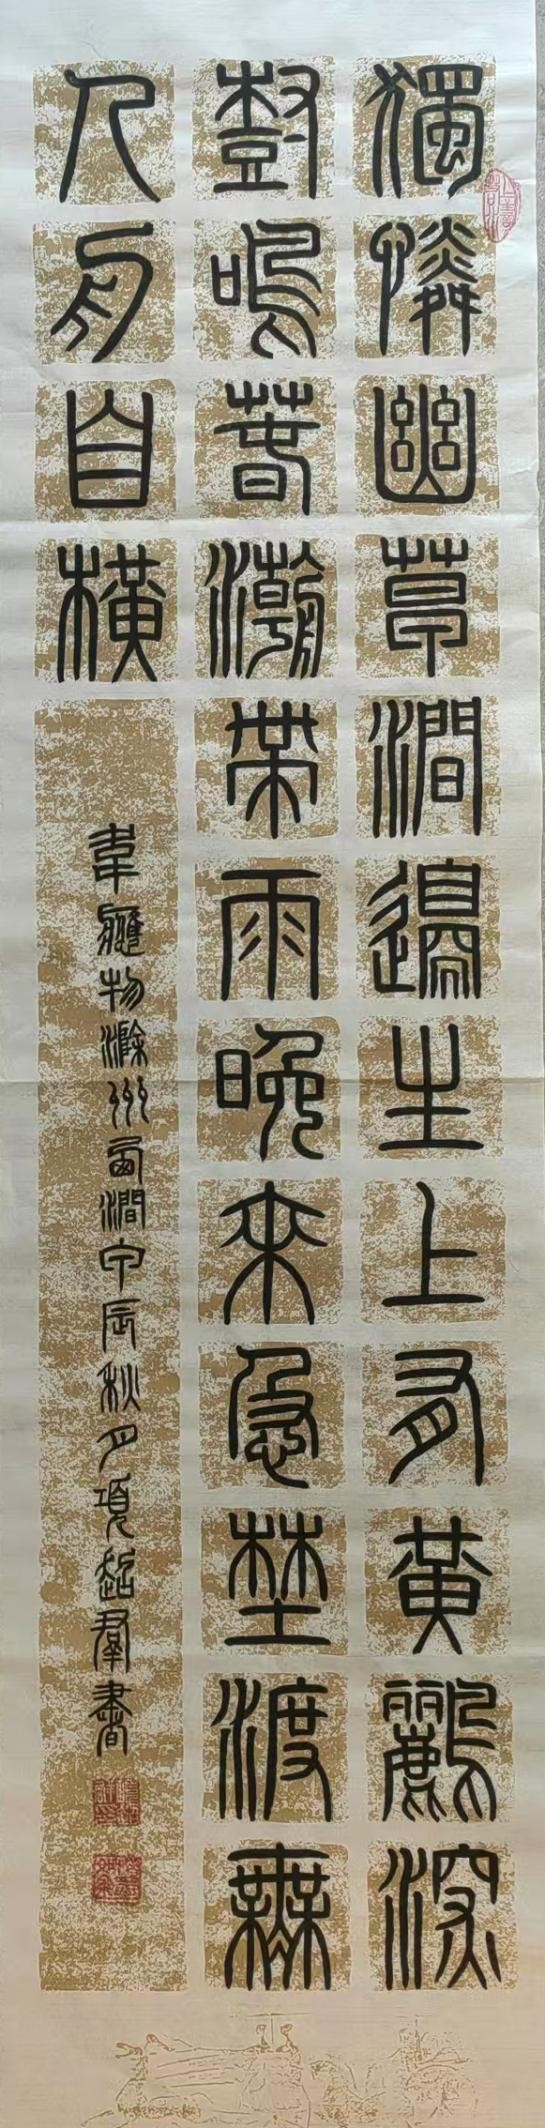 獨憐幽草澗邊生上有黃鸝深
樹鳴春潮帶雨晚來急埜渡無
人舟自橫
韋應物滁州西澗甲辰秋月項超羣書